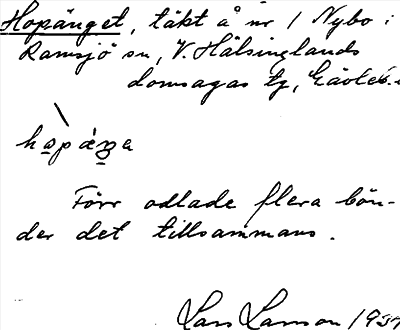 Hopänget, täkt å nr 1 Nybo i
Ramsjö sn, V. Hälsinglands
domsagas tg,
hopäŋa
Förr odlade flera bön-
der det tillsammans.
Lars Larsson